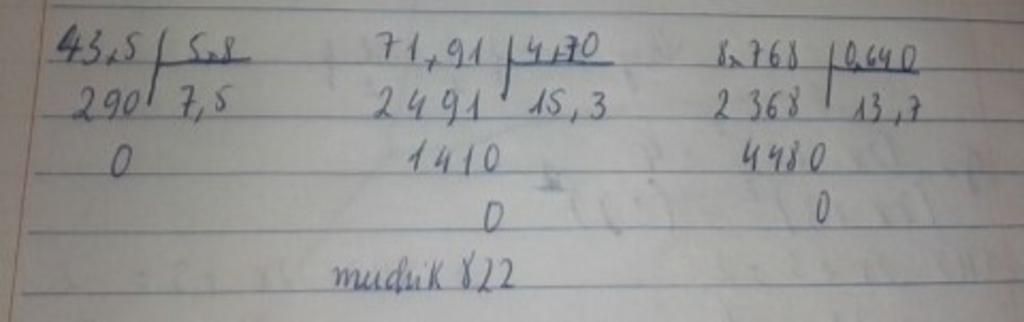 43,5 5,8 71,91 4,70 8,768 0,640
290 7,5 2491 15,3 2368 13,7
0 1410 4480
0 0
mudrik 822